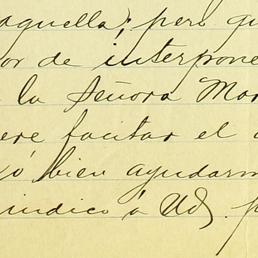 aquella); pero qu
or de interpone
la Señora Mar
ere facitar el
ó bien ayudarm
indico á Ud. p